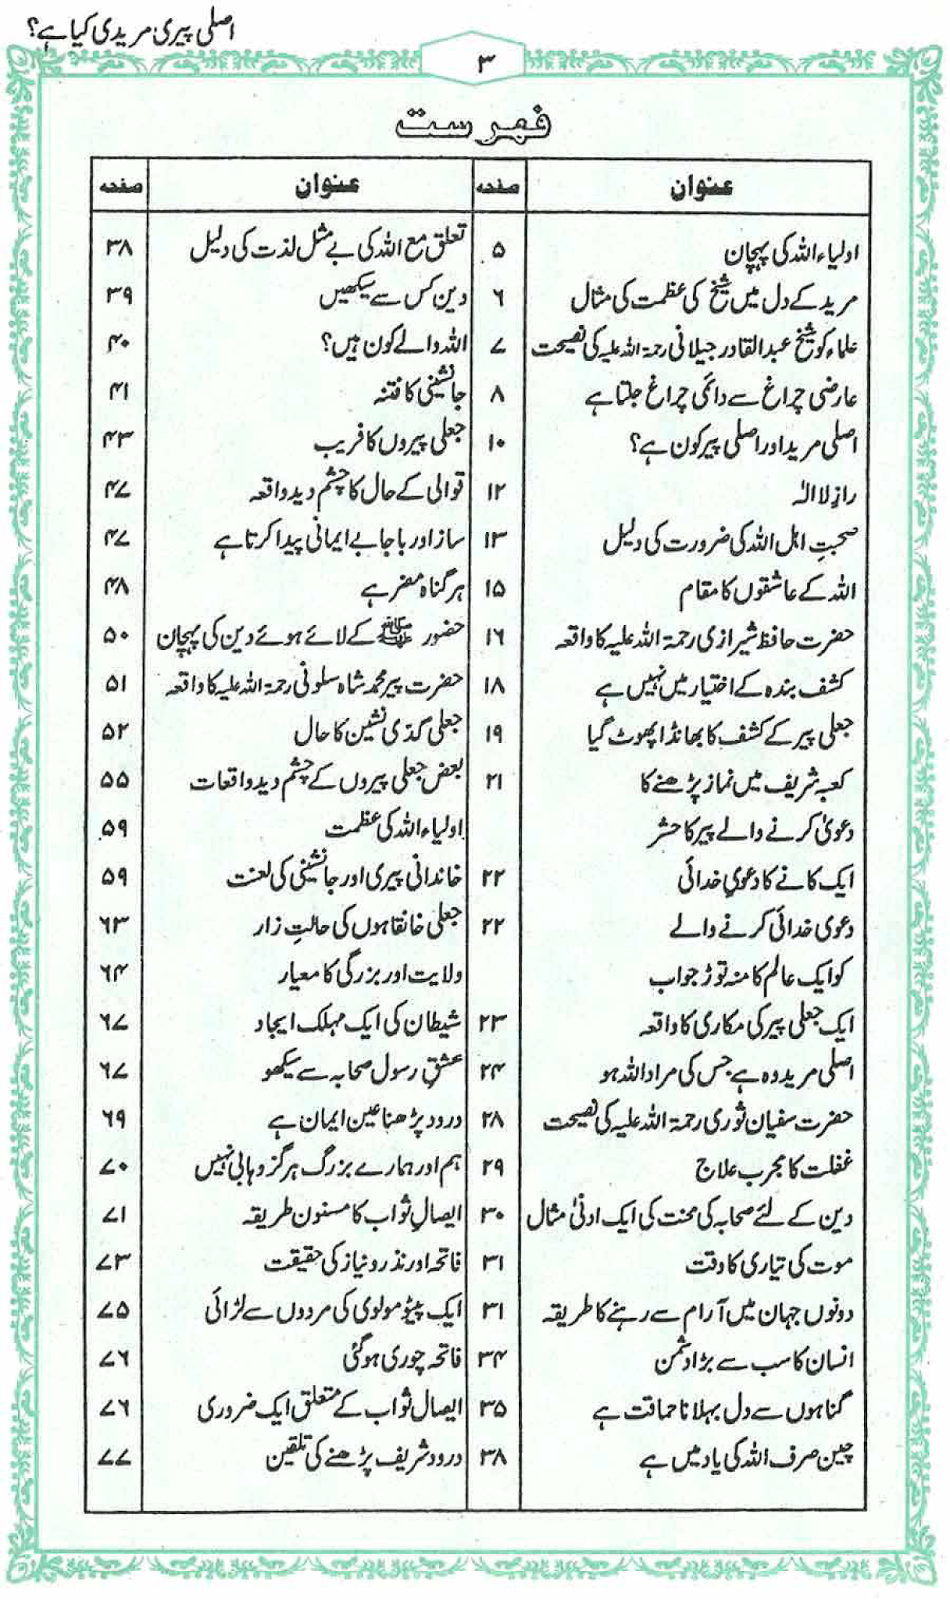 اصلی پیری مریدی کیا ہے؟
۳
فہرست
عنوان صفحہ عنوان صفحہ
اولیاء اللہ کی پہچان ۵ تعلق مع اللہ کی بے مثل لذت کی دلیل ۳۸
مرید کے دل میں شیخ کی عظمت کی مثال ۶ دین کس سے سیکھیں ۳۹
علماء کو شیخ عبدالقادر جیلانی رحمۃ اللہ علیہ کی نصیحت ۷ اللہ والے کون ہیں؟ ۴۰
عارضی چراغ سے دائمی چراغ جلتا ہے ۸ جانشینی کا فتنہ ۴۱
اصلی مرید اور اصلی پیر کون ہے؟ ۱۰ جعلی پیروں کا فریب ۴۳
رازِ لا الٰہ ۱۲ قوالی کے حال کا چشم دید واقعہ ۴۷
صحبتِ اہل اللہ کی ضرورت کی دلیل ۱۳ ساز اور باجا بے ایمانی پیدا کرتا ہے ۴۷
اللہ کے عاشقوں کا مقام ۱۵ ہر گناہ مضر ہے ۴۸
حضرت حافظ شیرازی رحمۃ اللہ علیہ کا واقعہ ۱۶ حضور ﷺ کے لائے ہوئے دین کی پہچان ۵۰
کشف بندہ کے اختیار میں نہیں ہے ۱۸ حضرت پیر محمد شاہ سلونی رحمۃ اللہ علیہ کا واقعہ ۵۱
جعلی پیر کے کشف کا بھانڈا پھوٹ گیا ۱۹ جعلی گدّی نشین کا حال ۵۲
کعبہ شریف میں نماز پڑھنے کا ۲۱ بعض جعلی پیروں کے چشم دید واقعات ۵۵
دعویٰ کرنے والے پیر کا حشر اولیاء اللہ کی عظمت ۵۹
ایک کانے کا دعویِ خدائی ۲۲ خاندانی پیری اور جانشینی کی لعنت ۵۹
دعوی خدائی کرنے والے ۲۲ جعلی خانقاہوں کی حالتِ زار ۶۳
کو ایک عالم کا منہ توڑ جواب ولایت اور بزرگی کا معیار ۶۴
ایک جعلی پیر کی مکاری کا واقعہ ۲۳ شیطان کی ایک مہلک ایجاد ۶۷
اصلی مرید وہ ہے جس کی مراد اللہ ہو ۲۴ عشقِ رسول صحابہ سے سیکھو ۶۷
حضرت سفیان ثوری رحمۃ اللہ علیہ کی نصیحت ۲۸ درود پڑھنا عین ایمان ہے ۶۹
غفلت کا مجرب علاج ۲۹ ہم اور ہمارے بزرگ ہرگز وہابی نہیں ۷۰
دین کے لئے صحابہ کی محنت کی ایک ادنیٰ مثال ۳۰ ایصالِ ثواب کا مسنون طریقہ ۷۱
موت کی تیاری کا وقت ۳۱ فاتحہ اور نذر و نیاز کی حقیقت ۷۳
دونوں جہان میں آرام سے رہنے کا طریقہ ۳۱ ایک پیٹو مولوی کی مردوں سے لڑائی ۷۵
انسان کا سب سے بڑا دشمن ۳۴ فاتحہ چوری ہوگئی ۷۶
گناہوں سے دل بہلانا حماقت ہے ۳۵ ایصال ثواب کے متعلق ایک ضروری ۷۶
چین صرف اللہ کی یاد میں ہے ۳۸ درود شریف پڑھنے کی تلقین ۷۷